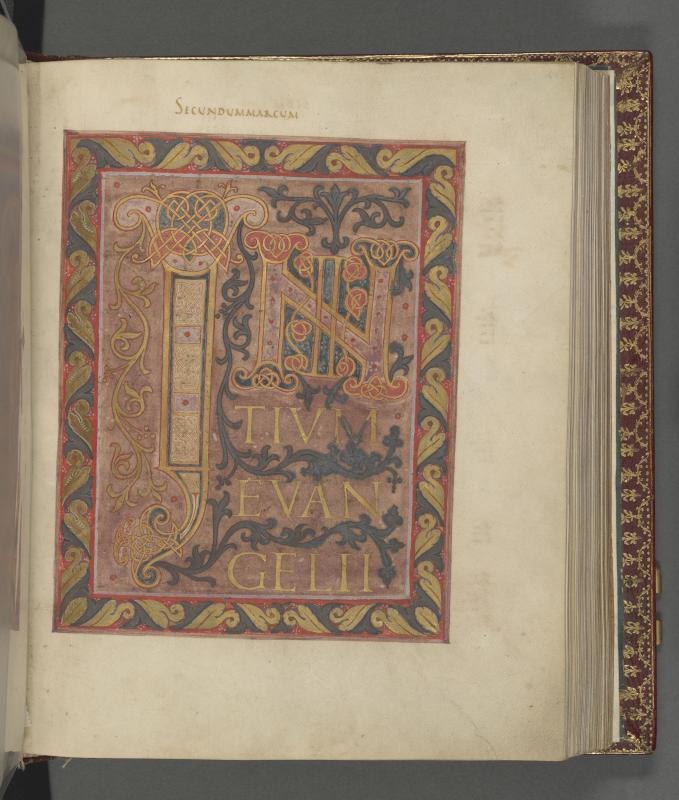 SECUNDUMMARCUM
INI
TIVM
EVAN
GELII